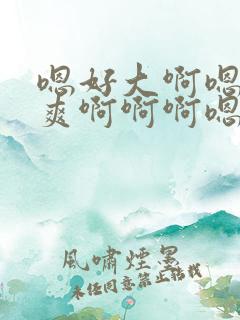 嗯好大啊嗯
爽啊啊啊嗯
風嘯煙墨
未经同意禁止转载